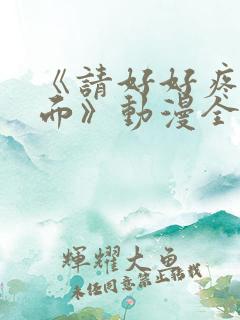 《請好好疼
而》動漫全
輝耀大魚
未任同意禁止転載